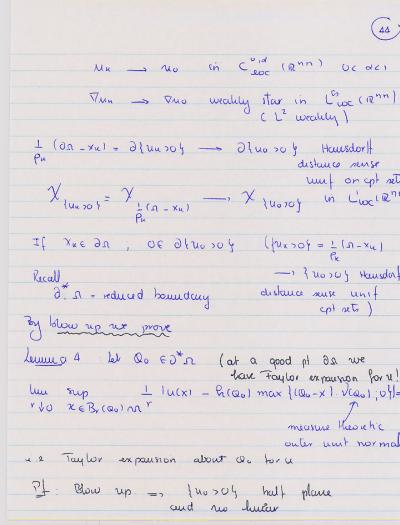 44
u_k → u_0 in C^{0,α}_{loc} (ℝ^{n+1}) 0<α<1
∇u_k → ∇u_0 weakly star in L^∞_{loc} (ℝ^{n+1})
(L² weakly)
1/ρ_k (∂Ω - x_k) = ∂{u_k>0} → ∂{u_0>0} Hausdorff
distance sense
unif on cpt sets
χ_{u_k>0} = χ_{1/ρ_k (Ω - x_k)} → χ_{u_0>0} in L¹_{loc}(ℝ^{n+1}
If x_k ∈ ∂Ω , 0 ∈ ∂{u_0>0} ({u_k>0} = 1/ρ_k (Ω - x_k)
→ {u_0>0} Hausdorff
Recall
∂* Ω = reduced boundary
distance sense unif
cpt sets)
By blow up we prove
Lemma 4 Let Q_0 ∈ ∂*Ω (at a good pt ∂Ω we
have Taylor expansion for u!
lim sup 1/r |u(x) - h(Q_0) max {(Q_0-x)·ν(Q_0), 0}|=
r↓0 x∈B_r(Q_0)∩Ω
measure theoretic
outer unit normal
i.e Taylor expansion about Q_0 for u
Pf: Blow up ⇒ {u_0>0} half plane
and u_0 linear